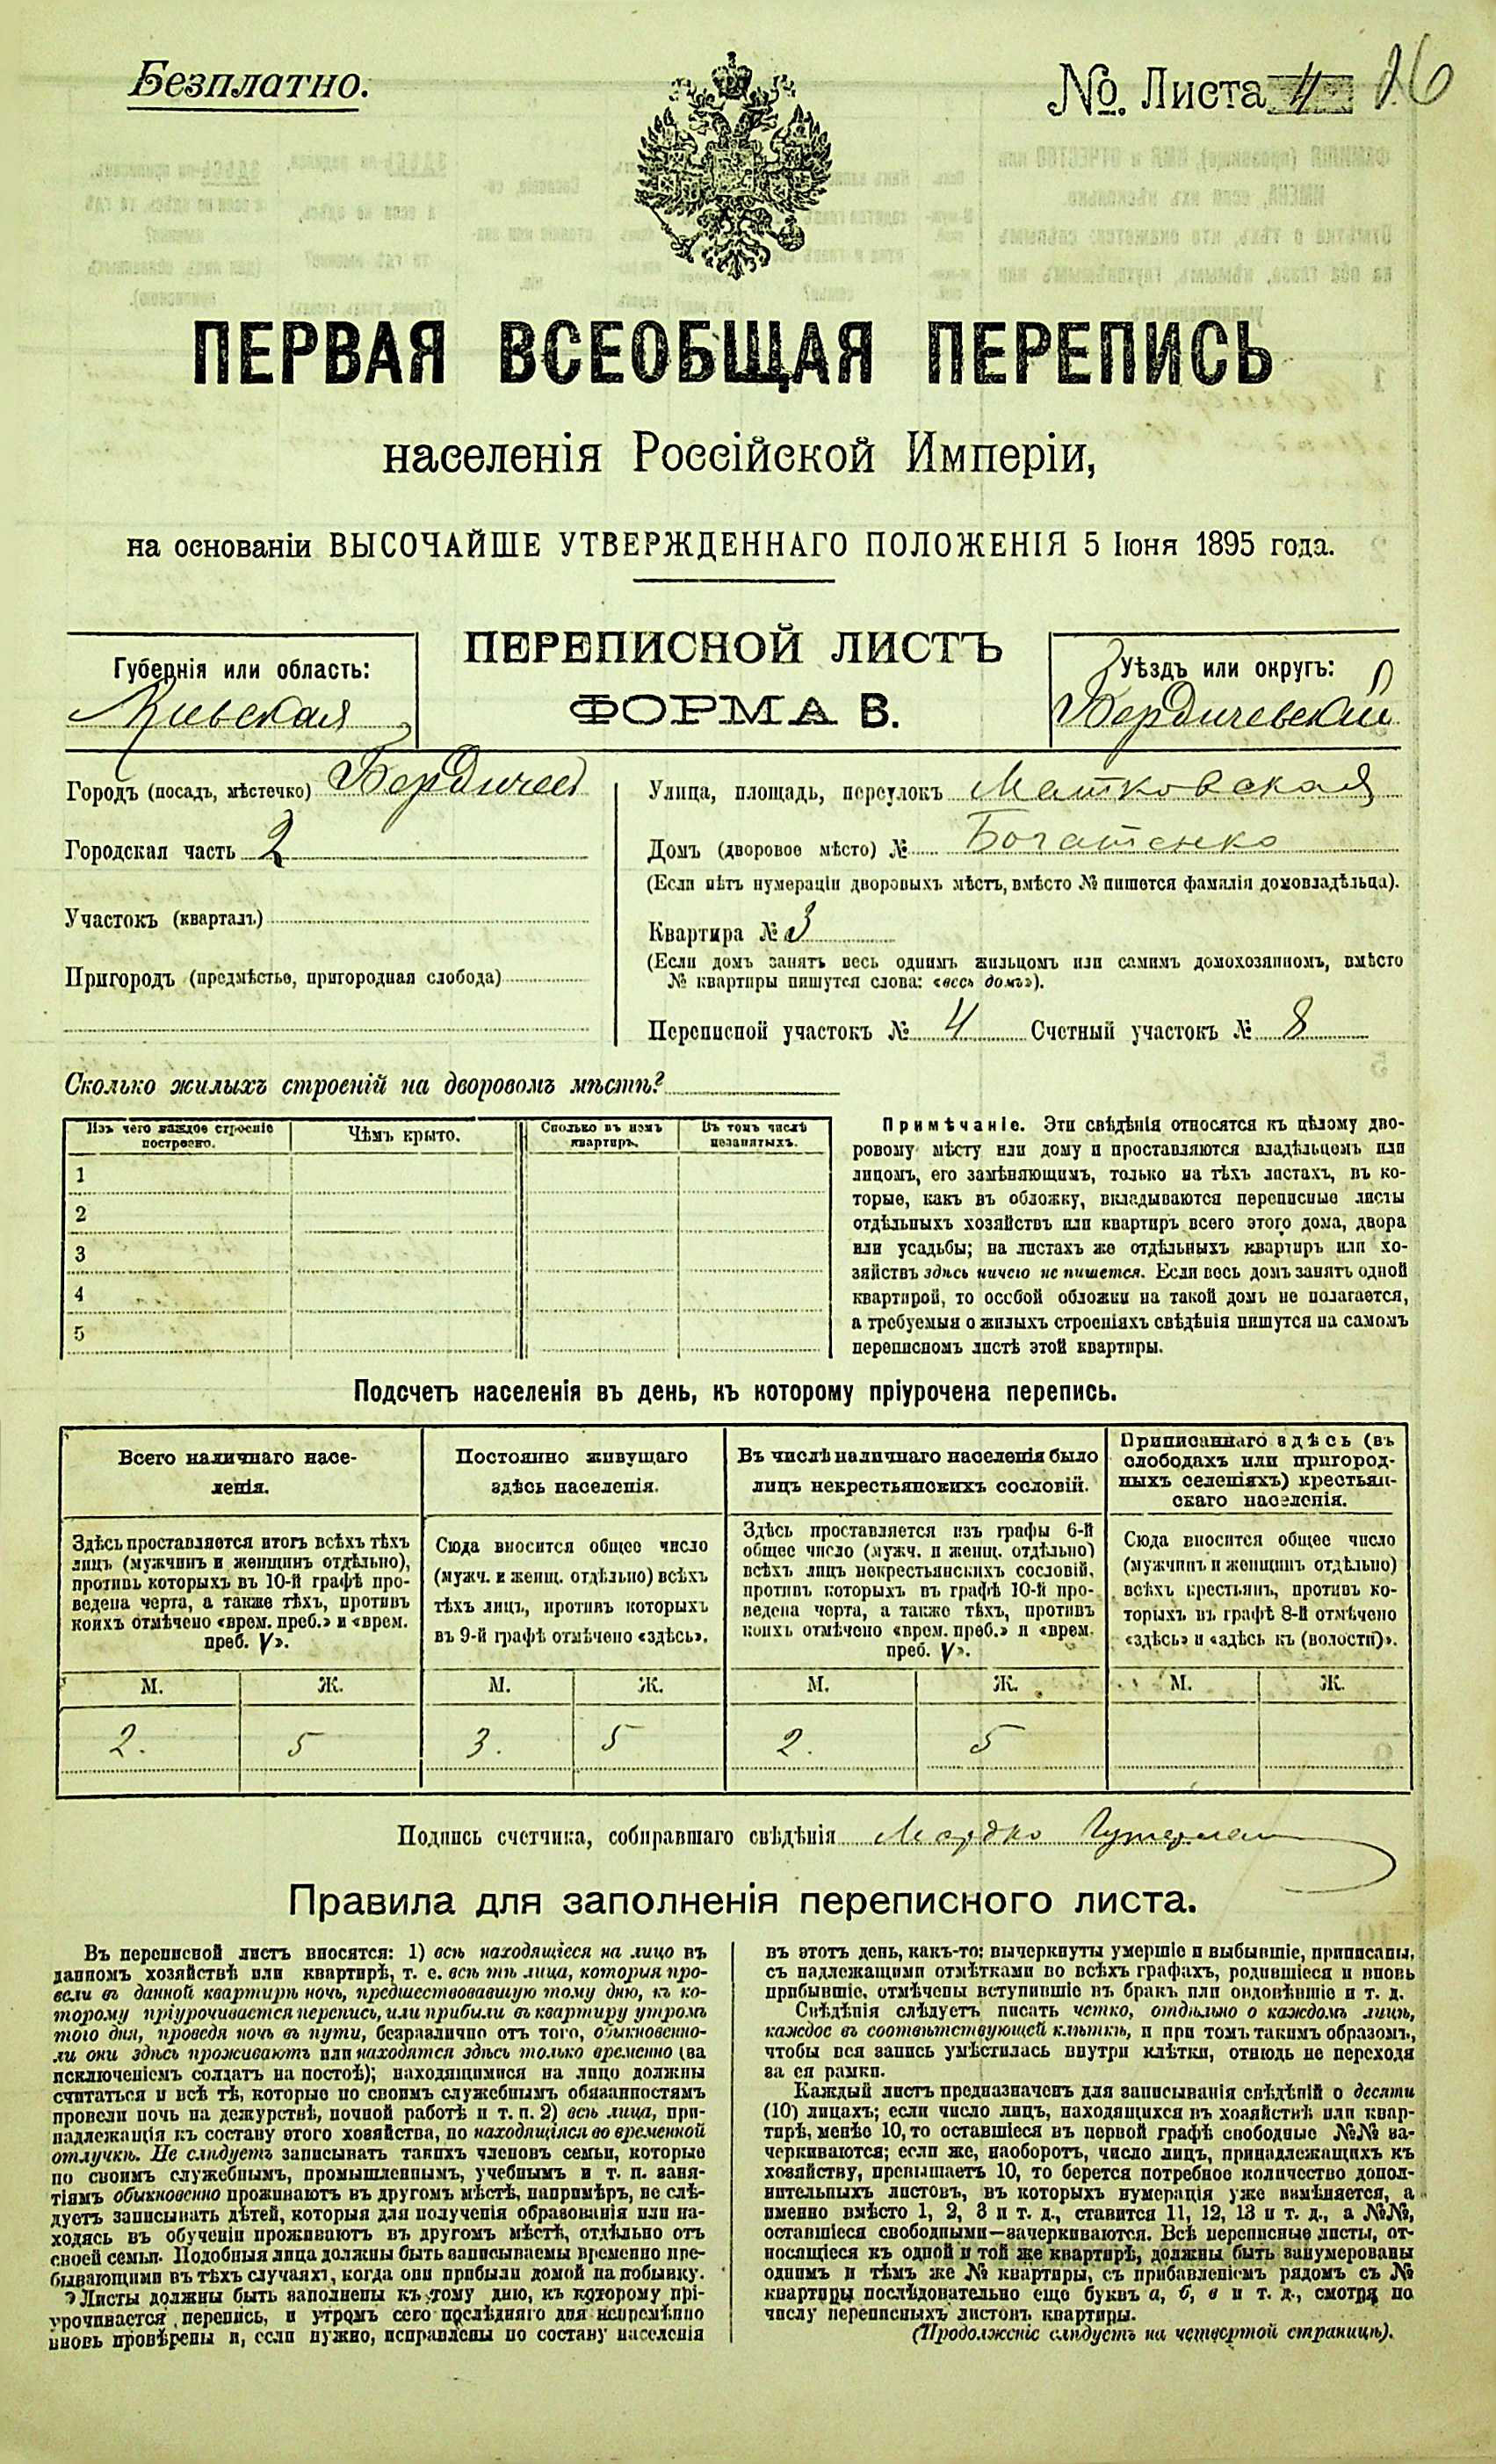 Безплатно.
№. Листа 4 16
ПЕРВАЯ ВСЕОБЩАЯ ПЕРЕПИСЬ
населенія Россійской Имперіи,
на основаніи ВЫСОЧАЙШЕ УТВЕРЖДЕННАГО ПОЛОЖЕНІЯ 5 Іюня 1895 года.
ПЕРЕПИСНОЙ ЛИСТЪ
ФОРМА В.
Губернія или область:
Кіевская
Уѣздъ или округъ:
Бердичевский
Городъ (посадъ, мѣстечко) Бердичев
Городская часть 2
Участокъ (кварталъ)
Пригородъ (предмѣстье, пригородная слобода)
Улица, площадь, переулокъ
Домъ (дворовое мѣсто) № Богатенко
(Если нѣтъ нумераціи дворовыхъ мѣстъ, вмѣсто № пишется фамилія домовладѣльца).
Квартира № 3
(Если домъ занятъ весь однимъ жильцомъ или самимъ домохозяиномъ, вмѣсто
№ квартиры пишутся слова: «весь домъ»).
Переписной участокъ № 4 Счетный участокъ № 8
Сколько жилыхъ строеній на дворовомъ мѣстѣ?
Изъ чего каждое строеніе
построено.
Чѣмъ крыто.
Сколько въ немъ
квартиръ.
Въ томъ числѣ
незанятыхъ.
1
2
3
4
5
Примѣчаніе. Эти свѣдѣнія относятся къ цѣлому дво-
ровому мѣсту или дому и проставляются владѣльцемъ или
лицомъ, его замѣняющимъ, только на тѣхъ листахъ, въ ко-
торые, какъ въ обложку, вкладываются переписные листы
отдѣльныхъ хозяйствъ или квартиръ всего этого дома, двора
или усадьбы; на листахъ же отдѣльныхъ квартиръ или хо-
зяйствъ здѣсь ничего не пишется. Если весь домъ занятъ одной
квартирой, то особой обложки на такой домъ не полагается,
а требуемыя о жилыхъ строеніяхъ свѣдѣнія пишутся на самомъ
переписномъ листѣ этой квартиры.
Подсчетъ населенія въ день, къ которому пріурочена перепись.
Всего наличнаго насе-
ленія.
Постоянно живущаго
здѣсь населенія.
Въ числѣ наличнаго населенія было
лицъ некрестьянскихъ сословій.
Приписаннаго здѣсь (въ
слободахъ или пригород-
ныхъ селеніяхъ) крестьян-
скаго населенія.
Здѣсь проставляется итогъ всѣхъ тѣхъ
лицъ (мужчинъ и женщинъ отдѣльно),
противъ которыхъ въ 10-й графѣ про-
ведена черта, а также тѣхъ, противъ
коихъ отмѣчено «врем. преб.» и «врем.
преб. V».
Сюда вносится общее число
(мужч. и женщ. отдѣльно) всѣхъ
тѣхъ лицъ, противъ которыхъ
въ 9-й графѣ отмѣчено «здѣсь».
Здѣсь проставляется изъ графы 6-й
общее число (мужч. и женщ. отдѣльно)
всѣхъ лицъ некрестьянскихъ сословій,
противъ которыхъ въ графѣ 10-й про-
ведена черта, а также тѣхъ, противъ
коихъ отмѣчено «врем. преб.» и «врем.
преб. V».
Сюда вносится общее число
(мужчинъ и женщинъ отдѣльно)
всѣхъ крестьянъ, противъ ко-
торыхъ въ графѣ 8-й отмѣчено
«здѣсь» и «здѣсь къ (волости)».
М. Ж. М. Ж. М. Ж. М. Ж.
2. 5 3. 5 2. 5
Подпись счетчика, собиравшаго свѣдѣнія Мордко Гутерман
Правила для заполненія переписного листа.
Въ переписной листъ вносятся: 1) всѣ находящіеся на лицо въ
данномъ хозяйствѣ или квартирѣ, т. е. всѣ тѣ лица, которыя про-
вели въ данной квартирѣ ночь, предшествовавшую тому дню, къ ко-
торому пріурочивается перепись, или прибыли въ квартиру утромъ
того дня, проведя ночь въ пути, безразлично отъ того, обыкновенно-
ли они здѣсь проживаютъ или находятся здѣсь только временно (за
исключеніемъ солдатъ на постоѣ); находящимися на лицо должны
считаться и всѣ тѣ, которые по своимъ служебнымъ обязанностямъ
провели ночь на дежурствѣ, ночной работѣ и т. п. 2) всѣ лица, при-
надлежащія къ составу этого хозяйства, но находящіяся во временной
отлучкѣ. Не слѣдуетъ записывать такихъ членовъ семьи, которые
по своимъ служебнымъ, промышленнымъ, учебнымъ и т. п. заня-
тіямъ обыкновенно проживаютъ въ другомъ мѣстѣ, напримѣръ, не слѣ-
дуетъ записывать дѣтей, которыя для полученія образованія или на-
ходясь въ обученіи проживаютъ въ другомъ мѣстѣ, отдѣльно отъ
своей семьи. Подобныя лица должны быть записываемы временно пре-
бывающими въ тѣхъ случаяхъ, когда они прибыли домой на побывку.
Листы должны быть заполнены къ тому дню, къ которому прі-
урочивается перепись, и утромъ сего послѣдняго дня непремѣнно
вновь провѣрены и, если нужно, исправлены по составу населенія
въ этотъ день, какъ-то: вычеркнуты умершіе и выбывшіе, приписаны,
съ надлежащими отмѣтками во всѣхъ графахъ, родившіеся и вновь
прибывшіе, отмѣчены вступившіе въ бракъ или овдовѣвшіе и т. д.
Свѣдѣнія слѣдуетъ писать четко, отдѣльно о каждомъ лицѣ,
каждое въ соотвѣтствующей клѣткѣ, и при томъ такимъ образомъ,
чтобы вся запись умѣстилась внутри клѣтки, отнюдь не переходя
за ея рамки.
Каждый листъ предназначенъ для записыванія свѣдѣній о десяти
(10) лицахъ; если число лицъ, находящихся въ хозяйствѣ или квар-
тирѣ, менѣе 10, то оставшіеся въ первой графѣ свободные №№ за-
черкиваются; если же, наоборотъ, число лицъ, принадлежащихъ къ
хозяйству, превышаетъ 10, то берется потребное количество допол-
нительныхъ листовъ, въ которыхъ нумерація уже измѣняется, а
именно вмѣсто 1, 2, 3 и т. д., ставится 11, 12, 13 и т. д., а №№,
оставшіеся свободными—зачеркиваются. Всѣ переписные листы, от-
носящіеся къ одной и той же квартирѣ, должны быть занумерованы
однимъ и тѣмъ же № квартиры, съ прибавленіемъ рядомъ съ №
квартиры послѣдовательно еще буквъ а, б, в и т. д., смотря по
числу переписныхъ листовъ квартиры.
(Продолженіе слѣдуетъ на четвертой страницѣ).